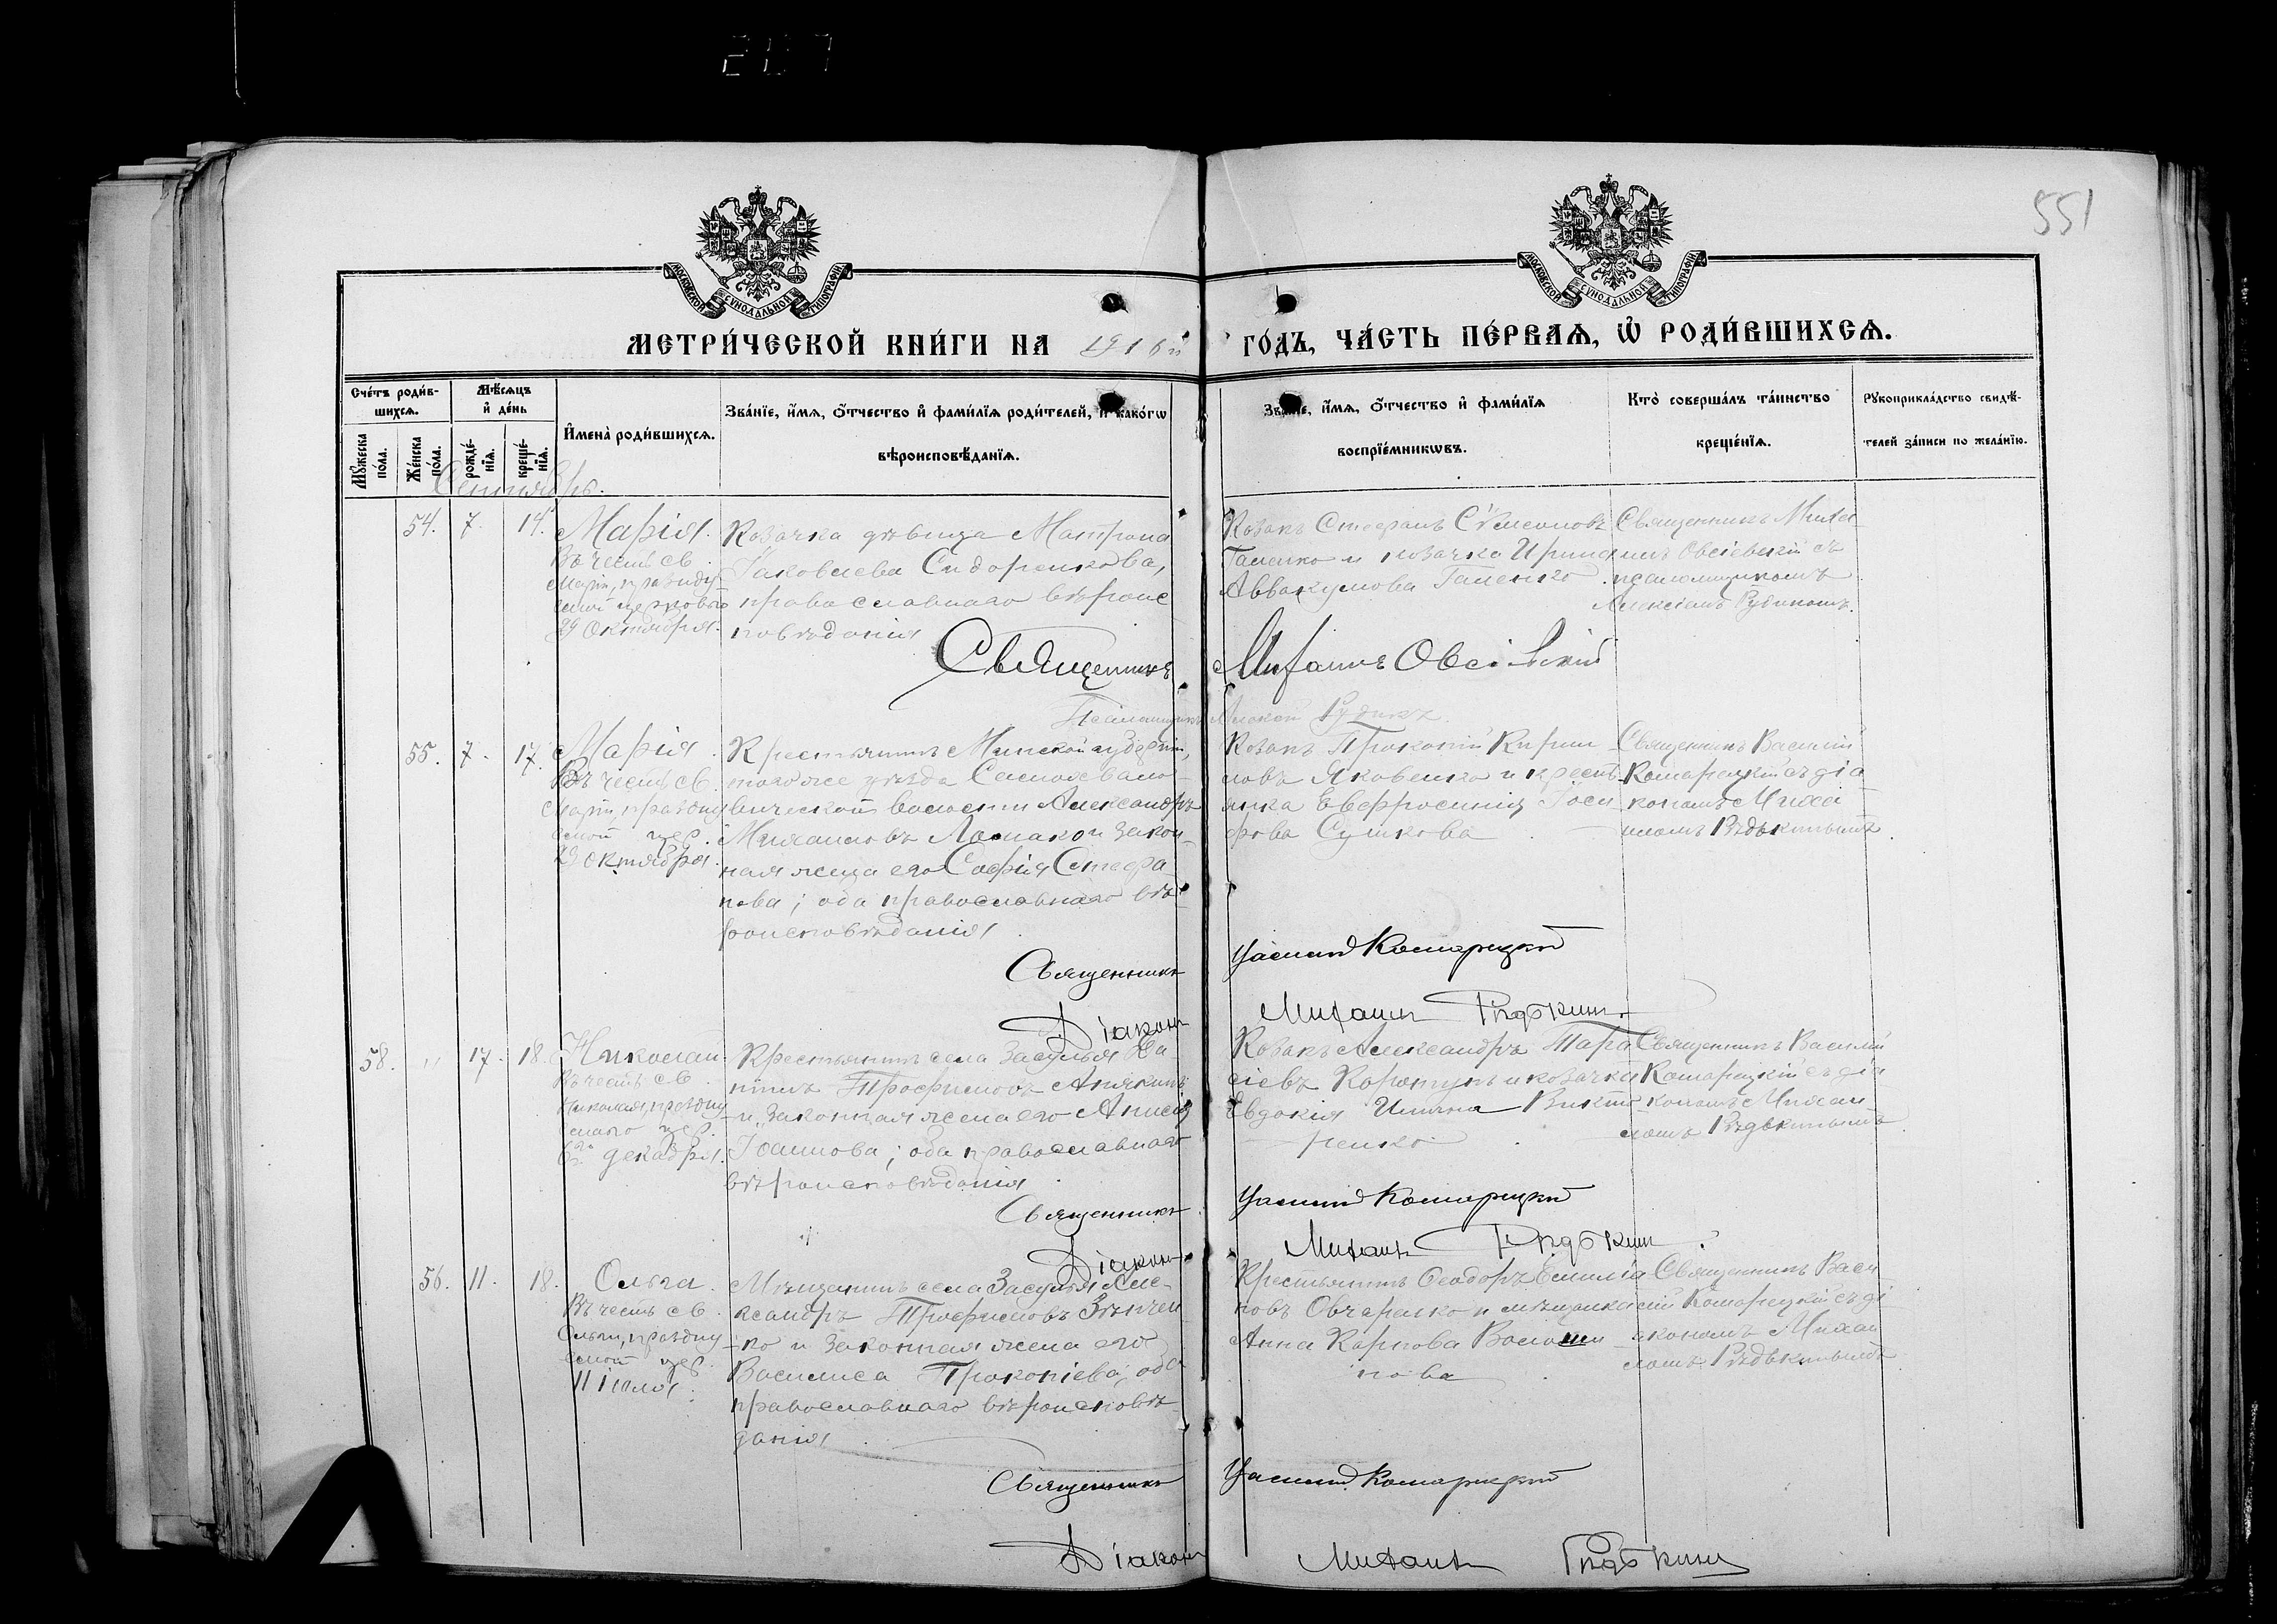 2107
551
МОСКОВСКОЙ СУНОДАЛЬНОЙ ТИПОГРАФІИ
МОСКОВСКОЙ СУНОДАЛЬНОЙ ТИПОГРАФІИ
МЕТРИ́ЧЕСКОЙ КНИ́ГИ НА 1916й ГО́ДЪ, ЧА́СТЬ ПЕ́РВАѦ, Ѡ҆ РОДИ́ВШИХСѦ.
Сче́тъ роди́в-
шихсѧ.
Мꙋ́жеска
по́ла.
Же́нска
по́ла.
Мѣ́сѧцъ
и҆ де́нь
рожде́-
нїѧ.
креще́-
нїѧ.
И҆мена̀ роди́вшихсѧ.
Зва́нїе, и҆́мѧ, ѻ҆́тчество и҆ фами́лїѧ роди́телей, и҆ како́гѡ
вѣроисповѣ́данїѧ.
Зва́нїе, и҆́мѧ, ѻ҆́тчество и҆ фами́лїѧ
воспрїе́мникѡвъ.
Кто̀ соверша́лъ та́инство
креще́нїѧ.
Рꙋкоприкла́дство свидѣ́-
телей за́писи по жела́нїю.
Сентябрь.
54. 7. 14.
Марія.
Въ честь св.
Маріи, празду-
емой церковью
29 Октября.
Козачка дѣвица Матрона
Іаковлева Сидоренкова,
православнаго вѣроис
повѣданія
Козакъ Стефанъ Сѵмеоновъ
Галенко и козачка Ирина
Аввакумова Галенко.
Священникъ Миха
илъ Овсіевскій съ
псаломщикомъ
Алексіемъ Рудикомъ.
Священникъ Михаилъ Овсіевскій
Псаломщикъ Алексій Рудикъ
55. 7. 17.
Марія.
Въ честь св.
Маріи, праздну
емой цер.
29 октября.
Крестьянинъ Минской губерніи,
того же уѣзда
вической волости Александръ
Михаиловъ и закон-
ная жена его Софія Стефа
нова; оба православнаго вѣ-
роисповѣданія.
Козакъ Прокопій Кирил-
ловъ Яковенко и кресть-
янка Евфросинія Іоси
фова Сушкова
Священникъ Василій
Комарецкій съ діа
кономъ Михаи
ломъ Рѣдькинымъ.
Священникъ Василій Комарецкій
Діаконъ Михаилъ Рѣдькинъ
58. " 17. 18.
Николай
Въ честь св.
Николая, праздну
емаго цер.
6го декабря.
Крестьянинъ села Засулья
Трофимовъ
и законная жена его Анисія
Іоаннова; оба православнаго
вѣроисповѣданія.
Козакъ Александръ Тара
сіевъ Коротунъ и козачка
Евдокія Ильина Викто-
ренко
Священникъ Василій
Комарецкій съ діа
кономъ Михаи
ломъ Рѣдькинымъ
Священникъ Василій Комарецкій
Діаконъ Михаилъ Рѣдькинъ
56. 11. 18.
Ольга.
Въ честь св.
Ольги, праздну
емой цер.
11 іюля.
Мѣщанинъ села Засулья Але-
ксандръ Трофимовъ Зѣнчен
-ко и законная жена его
Василиса Прокопіева; оба
православнаго вѣроисповѣ-
данія.
Крестьянинъ Ѳеодоръ Емилiа
новъ Овчаренко и мѣщанка
Анна Карпова Волоши-
нова
Священникъ Васи
лій Комарецкій съ ді
акономъ Михаи
ломъ Рѣдькинымъ
Священникъ Василій Комарецкій
Діаконъ Михаилъ Рѣдькинъ